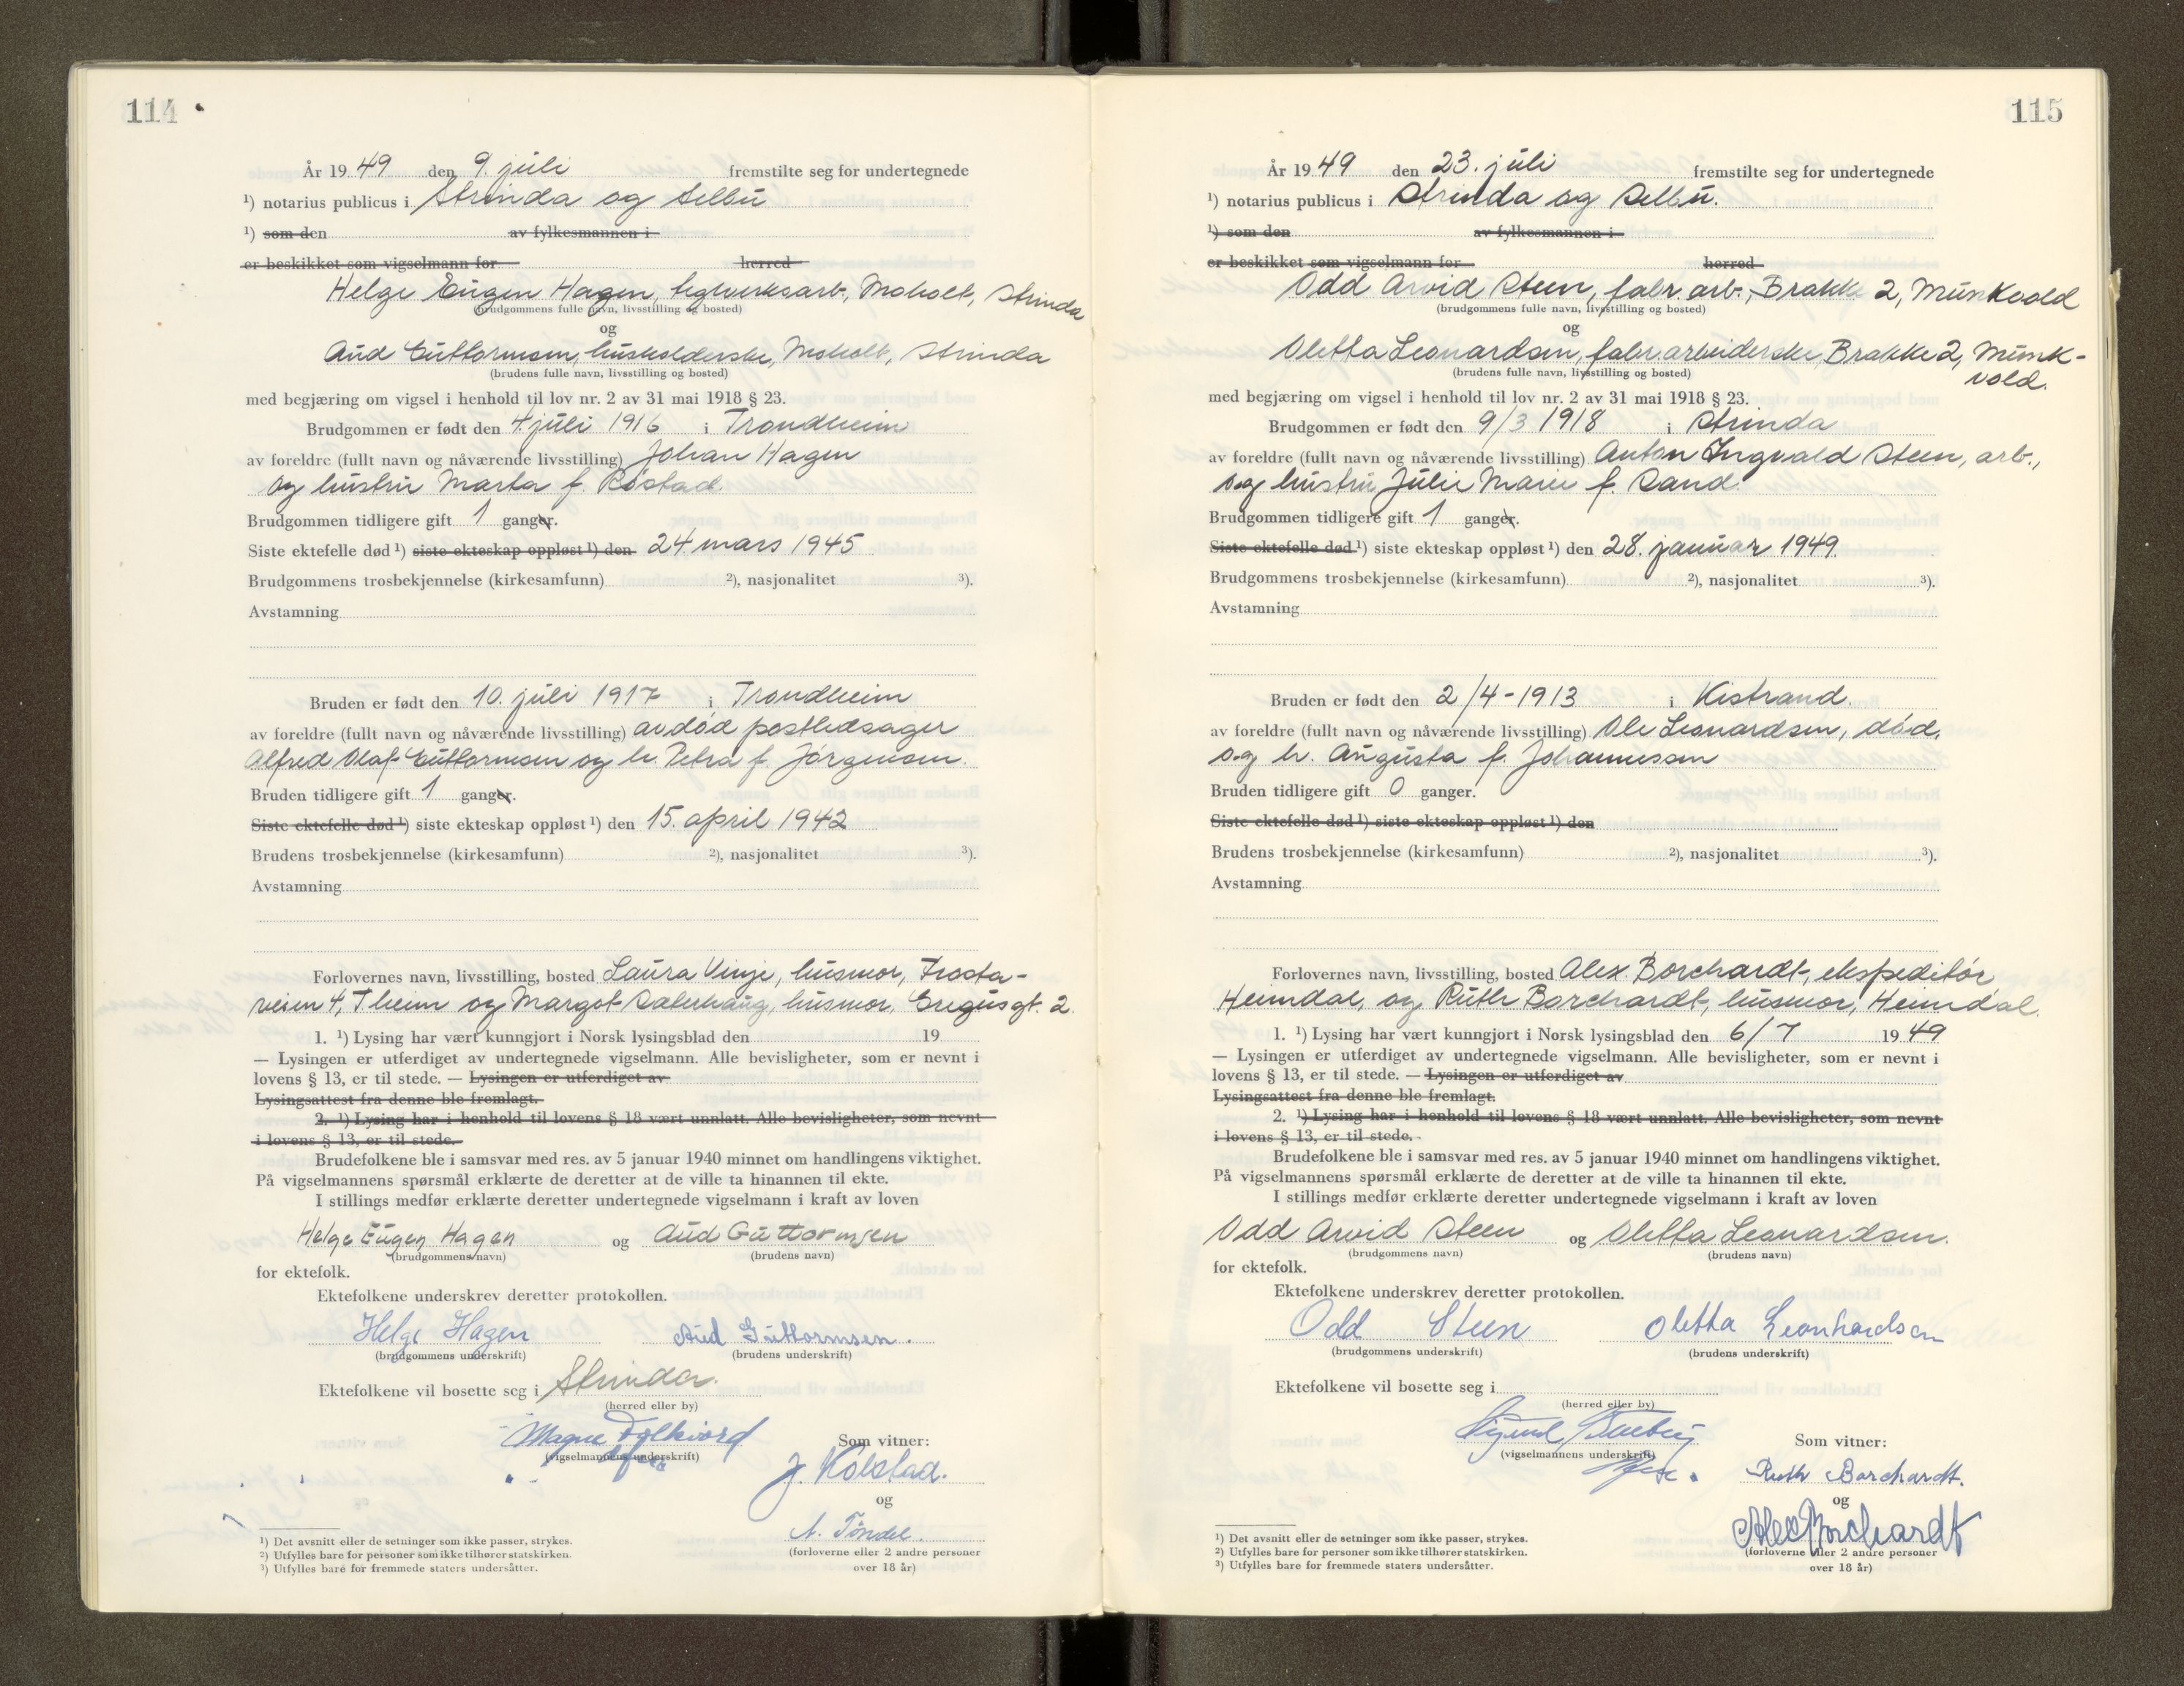 114
År 1949 den 9. juli fremstilte seg for undertegnede
¹) notarius publicus i Strinda og Selbu
¹) som den av fylkesmannen i
er beskikket som vigselmann for herred
Helge Eugen Hagen, teglverksarb., Moholt, Strinda
(brudgommens fulle navn, livsstilling og bosted)
og
Aud Guttormsen, husholderske, Moholt, Strinda
(brudens fulle navn, livsstilling og bosted)
med begjæring om vigsel i henhold til lov nr. 2 av 31 mai 1918 § 23.
Brudgommen er født den 4. juli 1916 i Trondheim
av foreldre (fullt navn og nåværende livsstilling) Johan Hagen
og hustru Marta f. Röstad
Brudgommen tidligere gift 1 ganger.
Siste ektefelle død ¹) siste ekteskap oppløst ¹) den 24 mars 1945
Brudgommens trosbekjennelse (kirkesamfunn) ²), nasjonalitet ³).
Avstamning
Bruden er født den 10. juli 1917 i Trondheim
av foreldre (fullt navn og nåværende livsstilling) avdød postledsager
Alfred Olaf Guttormsen og h. Petra f. Jörgensen.
Bruden tidligere gift 1 ganger.
Siste ektefelle død ¹) siste ekteskap oppløst ¹) den 15. april 1942
Brudens trosbekjennelse (kirkesamfunn) ²), nasjonalitet ³).
Avstamning
Forlovernes navn, livsstilling, bosted Laura Vinje, husmor, Frosta-
veien 4, Theim og Margot husmor, Gregusgt. 2.
1. ¹) Lysing har vært kunngjort i Norsk lysingsblad den 19
— Lysingen er utferdiget av undertegnede vigselmann. Alle bevisligheter, som er nevnt i
lovens § 13, er til stede. — Lysingen er utferdiget av
Lysingsattest fra denne ble fremlagt.
2. ¹) Lysing har i henhold til lovens § 18 vært unnlatt. Alle bevisligheter, som nevnt
i lovens § 13, er til stede.
Brudefolkene ble i samsvar med res. av 5 januar 1940 minnet om handlingens viktighet.
På vigselmannens spørsmål erklærte de deretter at de ville ta hinannen til ekte.
I stillings medfør erklærte deretter undertegnede vigselmann i kraft av loven
Helge Eugen Hagen og Aud Guttormsen
(brudgommens navn) (brudens navn)
for ektefolk.
Ektefolkene underskrev deretter protokollen.
Helge Hagen Aud Guttormsen.
(brudgommens underskrift) (brudens underskrift)
Ektefolkene vil bosette seg i Strinda.
(herred eller by)
Magne Som vitner:
(vigselmannens underskrift)
J. Kolstad.
og
A. Töndel.
(forloverne eller 2 andre personer
over 18 år)
¹) Det avsnitt eller de setninger som ikke passer, strykes.
²) Utfylles bare for personer som ikke tilhører statskirken.
³) Utfylles bare for fremmede staters undersåtter.
115
År 1949 den 23. juli fremstilte seg for undertegnede
¹) notarius publicus i Strinda og Selbu.
¹) som den av fylkesmannen i
er beskikket som vigselmann for herred
Odd Arvid Steen, fabr. arb., Brakke 2, Munkvold
(brudgommens fulle navn, livsstilling og bosted)
og
Oletta Leonardsen, fabr. arbeiderske, Brakke 2, Munk-
vold.
(brudens fulle navn, livsstilling og bosted)
med begjæring om vigsel i henhold til lov nr. 2 av 31 mai 1918 § 23.
Brudgommen er født den 9/3 1918 i Strinda
av foreldre (fullt navn og nåværende livsstilling) Anton Ingvald Steen, arb.,
og hustru Julie Marie f. Sand.
Brudgommen tidligere gift 1 ganger.
Siste ektefelle død ¹) siste ekteskap oppløst ¹) den 28. januar 1949
Brudgommens trosbekjennelse (kirkesamfunn) ²), nasjonalitet ³).
Avstamning
Bruden er født den 2/4-1913 i Kistrand.
av foreldre (fullt navn og nåværende livsstilling) Ole Leonardsen, död,
og h. Augusta f. Johannessen
Bruden tidligere gift 0 ganger.
Siste ektefelle død ¹) siste ekteskap oppløst ¹) den
Brudens trosbekjennelse (kirkesamfunn) ²), nasjonalitet ³).
Avstamning
Forlovernes navn, livsstilling, bosted Alex. Borchardt, ekspeditör
Heimdal, og Ruth Borchardt, husmor, Heimdal.
1. ¹) Lysing har vært kunngjort i Norsk lysingsblad den 6/7 1949
— Lysingen er utferdiget av undertegnede vigselmann. Alle bevisligheter, som er nevnt i
lovens § 13, er til stede. — Lysingen er utferdiget av
Lysingsattest fra denne ble fremlagt.
2. ¹) Lysing har i henhold til lovens § 18 vært unnlatt. Alle bevisligheter, som nevnt
i lovens § 13, er til stede.
Brudefolkene ble i samsvar med res. av 5 januar 1940 minnet om handlingens viktighet.
På vigselmannens spørsmål erklærte de deretter at de ville ta hinannen til ekte.
I stillings medfør erklærte deretter undertegnede vigselmann i kraft av loven
Odd Arvid Steen og Oletta Leonardsen.
(brudgommens navn) (brudens navn)
for ektefolk.
Ektefolkene underskrev deretter protokollen.
Odd Steen Oletta Leonhardsen
(brudgommens underskrift) (brudens underskrift)
Ektefolkene vil bosette seg i
(herred eller by)
Som vitner:
(vigselmannens underskrift)
Ruth Borchardt.
og
Alex Borchardt
(forloverne eller 2 andre personer
over 18 år)
¹) Det avsnitt eller de setninger som ikke passer, strykes.
²) Utfylles bare for personer som ikke tilhører statskirken.
³) Utfylles bare for fremmede staters undersåtter.